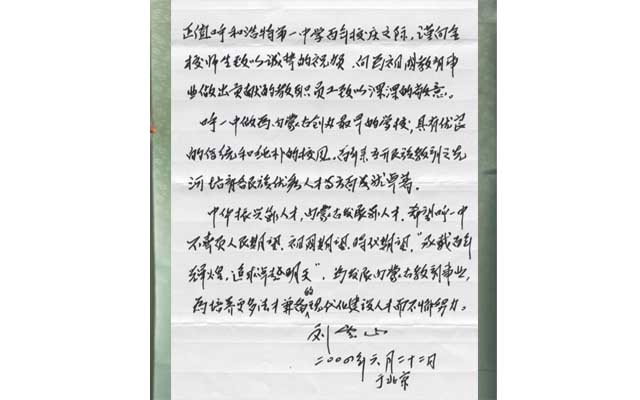 正值呼和浩特第一中学百年校庆之际，谨向全
校师生致以诚挚的祝贺，向为祖国教育事
业做出贡献的教职员工致以深深的敬意。
呼一中做为内蒙古创办最早的学校，具有优良
的传统和纯朴的校风。百年来在开民族教育之先
河培育各民族优秀人才等方面成就卓著。
中华振兴靠人才，内蒙古发展靠人才，希望呼一中
不辜负人民期望、祖国期望、时代期望，“承载百年
辉煌，追求卓越明天”，为发展内蒙古教育事业，
为培养更多德才兼备的现代化建设人才而不懈努力。
刘云山
二〇〇四年六月二十二日
于北京